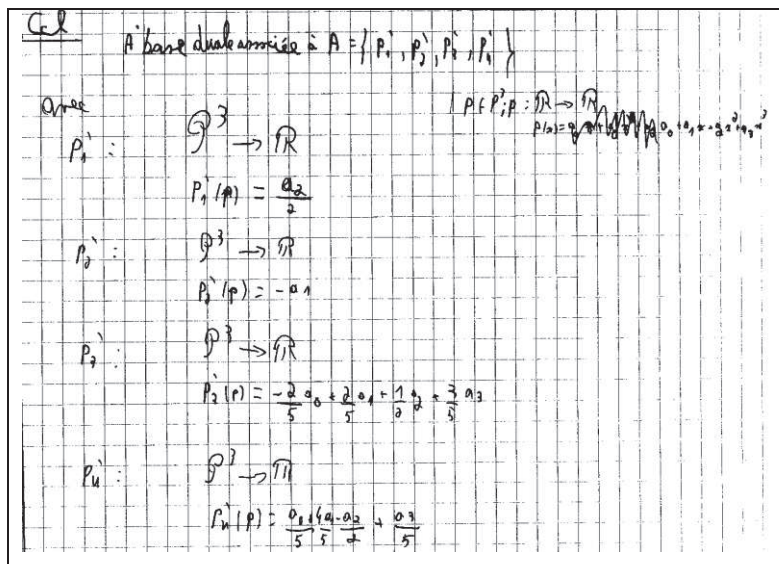 Ccl
A' base duale associée à A = { P₁', P₂', P₃', P₄' }
avec
| p ∈ P³; p : ℝ → ℝ
p(x) = a₀ + a₁x + a₂x² + a₃x³
P₁' : P³ → ℝ
P₁'(p) = a₂/2
P₂' : P³ → ℝ
P₂'(p) = -a₁
P₃' : P³ → ℝ
P₃'(p) = -2/5 a₀ + 2/5 a₁ + 1/2 a₂ + 3/5 a₃
P₄' : P³ → ℝ
P₄'(p) = a₀/5 + 4a₁/5 - a₂/2 + a₃/5